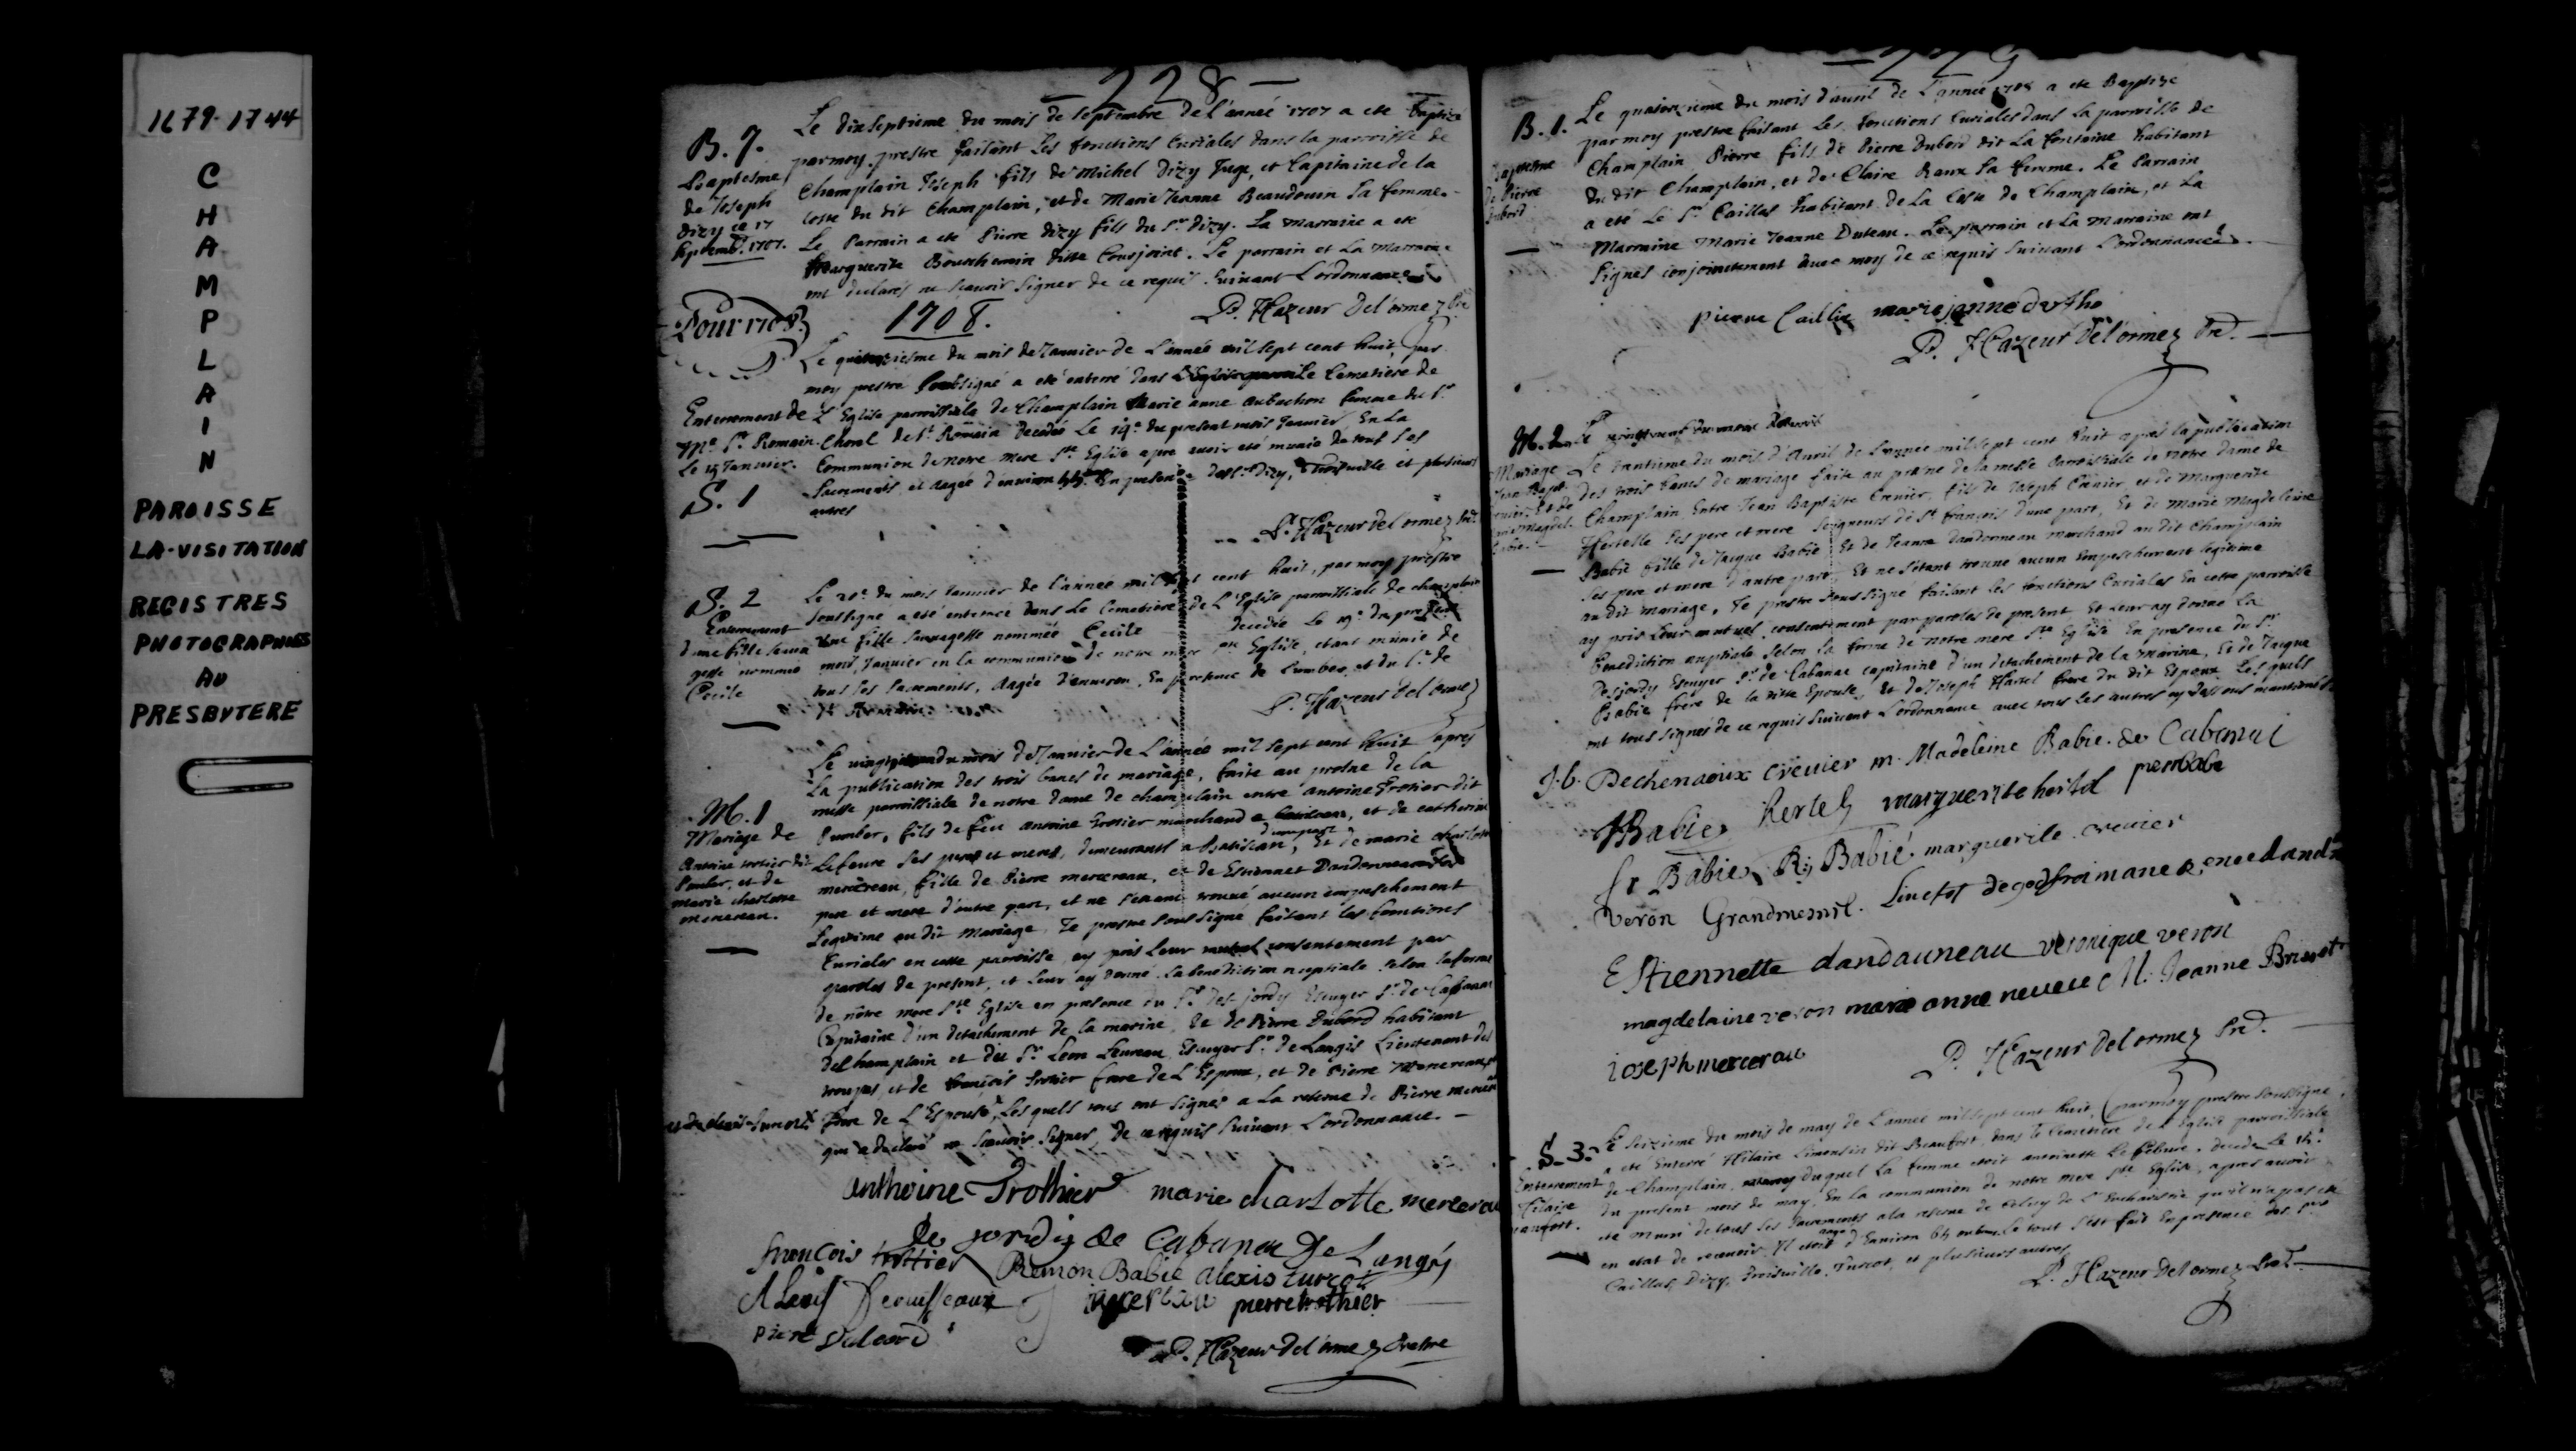 1679-1744
CHAMPLAIN
PAROISSE
LA-VISITATION
REGISTRES
PHOTOGRAPHIES
AU
PRESBYTERE
-228-
B. 7.
Baptesme
de Joseph
Dizy ce 17
Septemb. 1707.
Le dixseptieme du mois de septembre de l'année 1707 a ete Baptizé
par moy prestre faisant les fonctions Curiales dans la parroisse de
Champlain Joseph fils de Michel Dizy Juge, et Capitaine de la
Coste du dit Champlain, et de Marie Jeanne Beaudouin sa femme.
Le Parrain a ete Pierre Dizy fils du Sr. Dizy. La Marraine a ete
Marguerite Le parrain et La Marraine
ont declarés ne scavoir signer de ce requis suivant L'ordonnance
P. Hazeur Delorme
Pour 1708
1708.
Le du mois de Janvier de L'année mil sept cent huit, par
moy prestre soubsigné a eté enterré dans Le Cemetiere de
L'Eglise parroissiale de Champlain Marie anne aubuchon femme du Sr.
de St. Romain decedée Le 14e. du present mois Janvier, En La
Communion de notre mere Ste Eglise apre avoir eté munie de tous les
Sacrements et aagée d'environ En presence des Srs. Dizy, et plusieurs
autres
Enterrement de
Me. St. Romain
Le Janvier.
S. 1
P. Hazeur Delorme
S. 2
Enterrement
d'une fille sauva
gesse nommée
Cecile
Le 20e. du mois Janvier de l'année mil sept cent huit, par moy prestre
soussigné a eté enterrée dans Le Cemetiere de L'Eglise parroissiale de champlain
Une fille sauvagesse nommée Cecile decedée Le 19e. du present
mois Janvier en la communion de notre mere Ste Eglise, etant munie de
tous les sacrements, Aagée d'environ En presence de et du Sr. de
P. Hazeur Delorme
M. 1
Mariage de
Antoine trotier dit
Pombler, et de
marie charlotte
mercereau.
Le du mois de Janvier de L'année mil sept cent huit apres
La publication des trois bancs de mariage, faite au prosne de la
messe parroissiale de notre dame de champlain entre antoine trotier dit
Pombler, fils de feu antoine trotier marchand a batiscan, et de catherine
Lefebvre ses pere et mere, demeurants a Batiscan, d'une part Et de marie charlotte
mercereau, fille de Pierre mercereau, et de Estiennet Dandonneau ses
pere et mere d'autre part, et ne s'etant trouvé aucun empeschement
Legitime au dit mariage, Je prestre soussigné faisant les fonctions
Curiales en cette parroisse, ay pris leur mutuel consentement par
paroles de present, et leur ay donné la benediction nuptiale selon la forme
de nôtre mere Ste Eglise en presence du Sr. des jordy Escuyer Sr. de Cabanac
Capitaine d'un detachement de la marine, Et de Pierre Dubord habitant
de Champlain et du Sr. Leon Levreau Escuyer Sr. de Langis Lieutenant des
troupes, et de françois trotier frere de L'Espoux, et de Pierre Mercereau
frere de L'Espouse, Lesquels tous ont signés a La reserve de Pierre mercereau
qui a declaré ne scavoir signer, de ce requis suivant L'ordonnance.
anthoine Trothier marie charlotte mercerau
de jordy de Cabanac De Langÿ
francois trottier Remon Babie alexis turcot
ALexis Derusseaux mercerau pierre trothier
Piere Dubord
P. Hazeur Delorme Prestre
-229
B. 1.
Baptesme
de Pierre
Dubord
Le quatorzieme du mois d'avril de L'année 1708 a ete Baptizé
par moy prestre faisant les fonctions Curiales dans La parroisse de
Champlain Pierre fils de Pierre Dubord dit La fontaine habitant
du dit Champlain, et de Claire Raux sa femme. Le Parrain
a eté Le Sr. Caillas habitant de La Coste de Champlain, et La
Marraine Marie Jeanne Duteau. Le parrain et La Marraine ont
signés conjointement avec moy de ce requis suivant L'ordonnance.
pierre Caillia marie janne dutho
P. Hazeur Delorme
M. 2
Mariage
Jean Bapt.
Crevier, Et de
Marie Magdel.
Babie.
Le du mois d'Avril
Le trantieme du mois d'Avril de L'année mil sept cent huit après la publication
des trois bancs de mariage faite au prosne de la messe Parroissiale de Notre dame de
Champlain Entre Jean Baptiste Crevier, fils de Joseph Crevier, et de Marguerite
Hertelle ses pere et mere Seigneurs de St. françois d'une part, Et de Marie Magdeleine
Babie fille de Jacque Babie, Et de Jeanne Dandonneau marchand au dit Champlain
ses pere et mere d'autre part, Et ne s'étant trouvé aucun Empeschement legitime
au dit mariage, Je prestre soussigné faisant les fonctions Curiales En cette parroisse
ay pris Leur mutuel consentement par paroles de present Et Leur ay donné La
Benediction nuptiale selon la forme de notre mere Ste Eglise En presence du Sr.
Desjordy Escuyer Sr. de Cabanac capitaine d'un detachement de la Marine, Et de Jacque
Babie frere de la ditte Epouse, Et de Joseph Hartel frere du dit Espoux Lesquels
ont tous signés de ce requis suivant L'ordonnance avec tous les autres cy dessous mentionnés
J. b. Dechenaux Crevier m. Madeleine Babie. de Cabanac
JBabie Hertel marguerite hertel
fr Babie R; Babié marguerite crevier
Veron Grandmesnil.
EStiennette dandauneau veronique veron
magdelaine veron marie anne neveu M. Jeanne
ioseph mercerau
P. Hazeur Delorme
S. 3.
Enterrement
Hilaire
Beaufort.
Le seizieme du mois de may de L'année mil sept cent huit, par moy prestre soussigné,
a eté Enterré Hilaire Limousin dit Beaufort, dans le Cemetiere de L'Eglise parroissiale
de Champlain duquel La femme etoit antoinette Lefebvre, decedé Le
du present mois de may, En La communion de notre mere Ste Eglise, apres avoir
eté muni de tous les sacrements a la reserve de celuy de L'Eucharistie qu'il n'a pas eté
en etat de recevoir, Il etoit aagé d'Environ Le tout s'est fait En presence des Srs
Caillas, Dizy, Turcot, et plusieurs autres
P. Hazeur Delorme